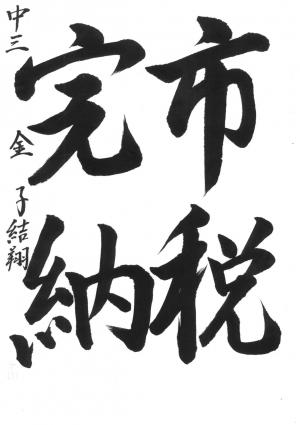 市税
完納
中三 金子結翔